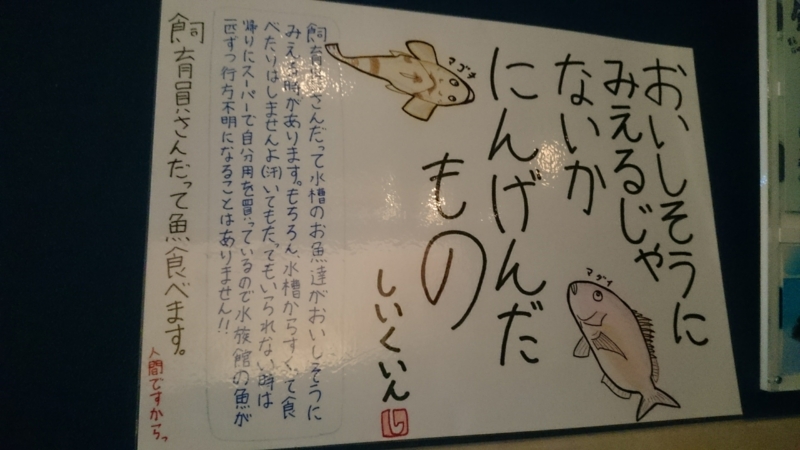 おいしそうに
みえるじゃ
ないか
にんげんだ
もの
しいくいん
し
マダイ
マゴチ
飼育員さんだって水槽のお魚達がおいしそうに
みえる時があります。もちろん、水槽からすくって食
べたりはしませんよ(汗)いてもたってもいられない時は
帰りにスーパーで自分用を買っているので水族館の魚が
匹ずつ行方不明になることはありません!!
飼育員さんだって魚食べます。
人間ですからっ